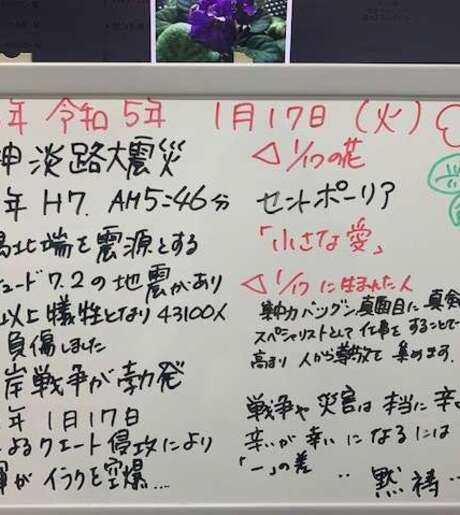 年 令和5年 1月17日(火)
神 淡路大震災
年 H7. AM5:46分
北端を震源とする
ュード7.2の地震があり
以上犠牲となり43100人
負傷しました
岸戦争が勃発
年 1月17日
よるクエート侵攻により
がイラクを空爆...
◁1/17の花
セントポーリア
「小さな愛」
◁1/17に生まれた人
集中力バツグン、真面目に真
スペシャリストとして仕事をすることで
高まり人から尊敬を集めます.
戦争や災害は本当に辛
辛いが幸いになるには
「一」の差
‥黙祷‥